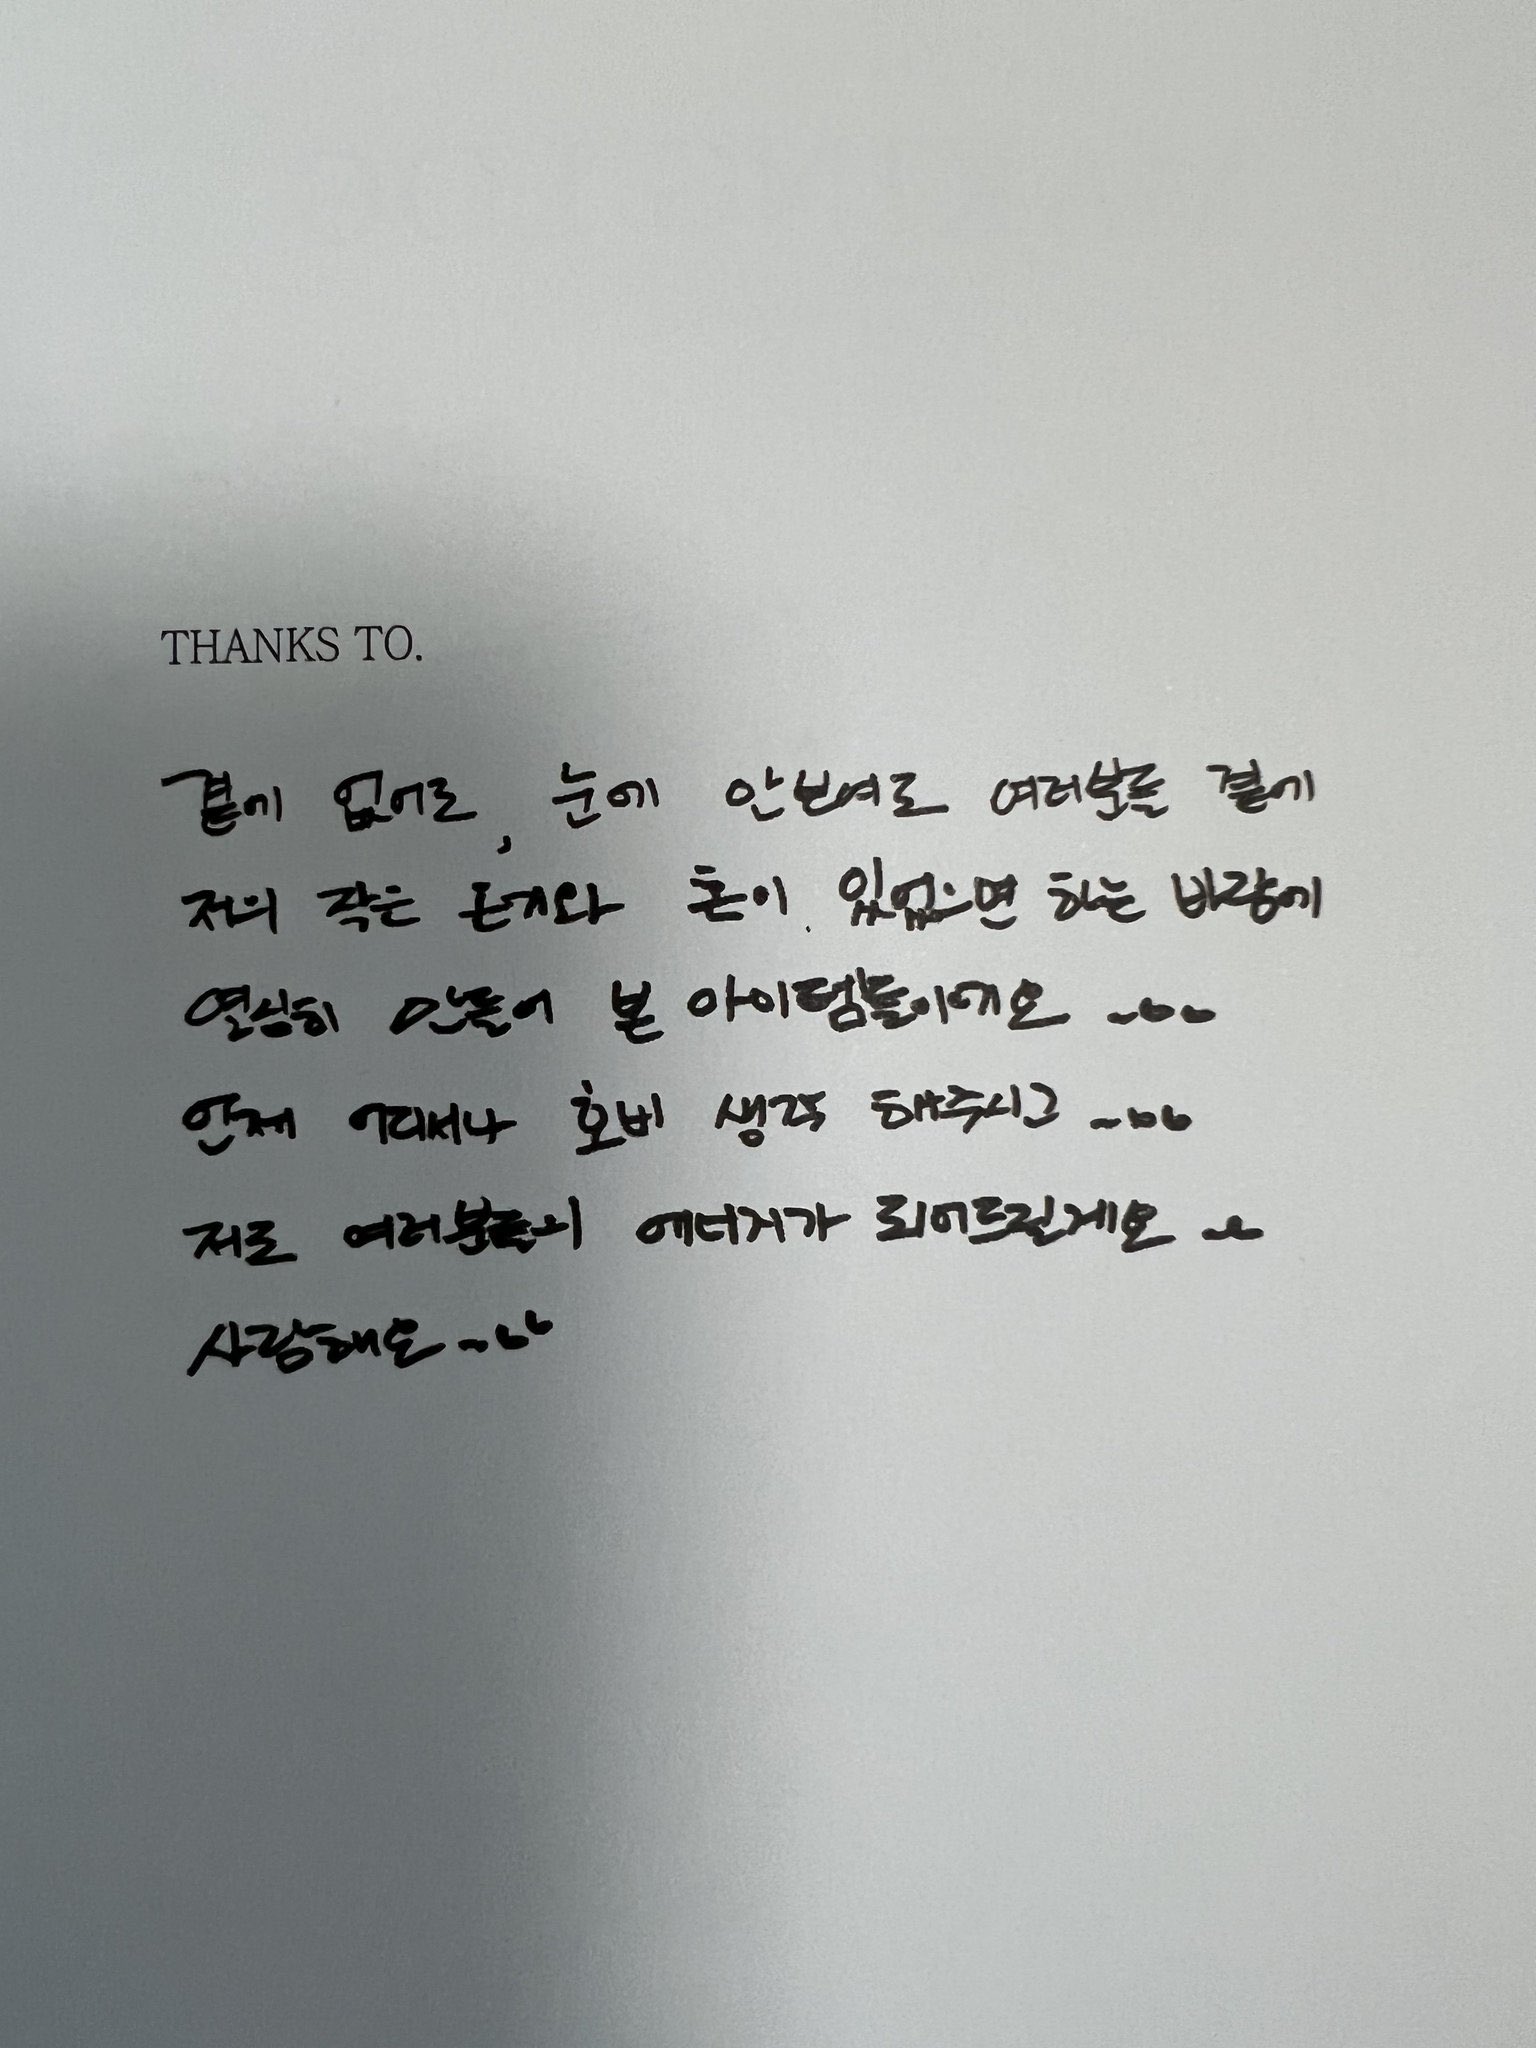 THANKS TO.
곁에 없어도, 눈에 안보여도 여러분들 곁에
저의 작은 온기와 혼이 있었으면 하는 바람에
열심히 만들어 본 아이템들이에요 ~
언제 어디서나 호비 생각 해주시고 ~
저도 여러분들의 에너지가 되어드릴게요 ~
사랑해요 ~